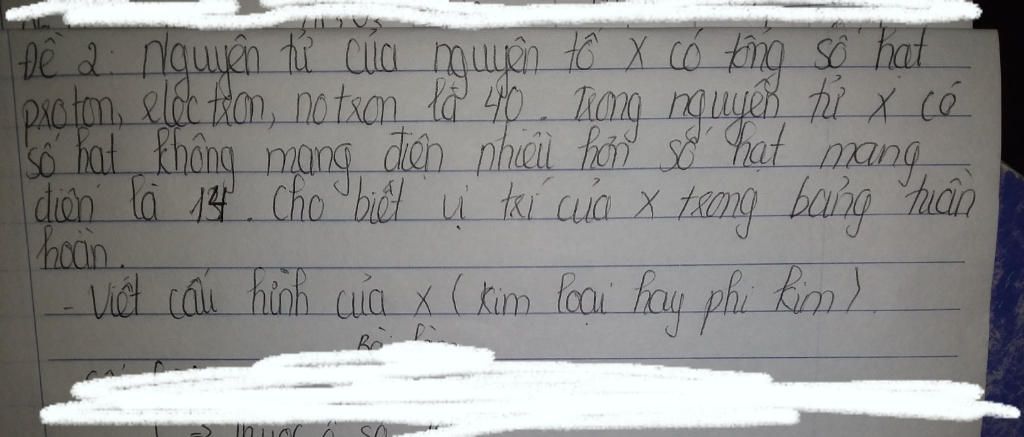 Đề 2: Nguyên tử của nguyên tố X có tổng số hạt
proton, electron, notron là 40. Trong nguyên tử X có
số hạt không mang điện nhiều hơn số hạt mang
điện là 14. Cho biết vị trí của X trong bảng tuần
hoàn.
- Viết cấu hình của X (Kim loại hay phi kim)